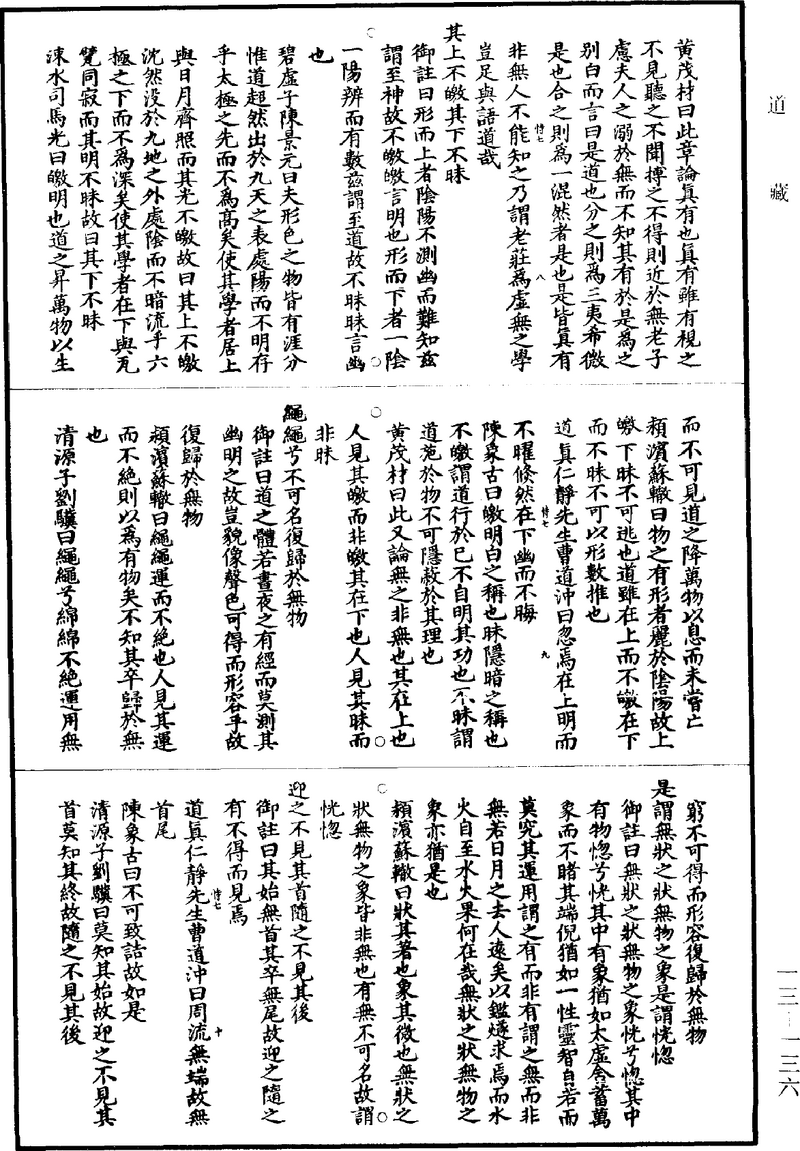 道藏
黃茂材曰此章論眞有也眞有雖有視之
不見聽之不聞摶之不得則近於無老子
慮夫人之溺於無而不知其有於是爲之
別白而言曰是道也分之則爲三夷希微
是也合之則爲一混然者是也是皆眞有
非無人不能知之乃謂老莊爲虛無之學
恃七 八
豈足與語道哉
其上不皦其下不昧
御註曰形而上者陰陽不測幽而難知玆
謂至神故不皦皦言明也形而下者一陰
一陽辨而有數玆謂至道故不昧昧言幽
也
碧虛子陳景元曰夫形色之物皆有涯分
惟道超然出於九天之表處陽而不明存
乎太極之先而不爲高矣使其學者居上
與日月齊照而其光不皦故曰其上不皦
沈然没於九地之外處陰而不暗流乎六
極之下而不爲深矣使其學者在下與瓦
甓同寂而其明不昧故曰其下不昧
涑水司馬光曰皦明也道之昇萬物以生
而不可見道之降萬物以息而未嘗亡
潁濱蘇轍曰物之有形者麗於陰陽故上
皦下昧不可逃也道雖在上而不皦在下
而不昧不可以形數推也
道眞仁靜先生曹道沖曰忽焉在上明而
恃七 九
不曜倏然在下幽而不晦
陳象古曰皦明白之稱也昧隱暗之稱也
不皦謂道行於已不自明其功也不昧謂
道施於物不可隱蔽於其理也
黃茂材曰此又論無之非無也其在上也
人見其皦而非皦其在下也人見其昧而
非昧
繩繩兮不可名復歸於無物
御註曰道之體若晝夜之有經而莫測其
幽明之故豈貌像聲色可得而形容乎故
復歸於無物
潁濱蘇轍曰繩繩運而不絶也人見其運
而不絶則以爲有物矣不知其卒歸於無
也
清源子劉驥曰繩繩兮綿綿不絶運用無
窮不可得而形容復歸於無物
是謂無狀之狀無物之象是謂恍惚
御註曰無狀之狀無物之象恍兮惚其中
有物惚兮恍其中有象猶如太虛含蓄萬
象而不睹其端倪猶如一性靈智自若而
莫究其運用謂之有而非有謂之無而非
無若日月之去人遠矣以鑑燧求焉而水
火自至水火果何在哉無狀之狀無物之
象亦猶是也
潁濱蘇轍曰狀其著也象其微也無狀之
狀無物之象皆非無也有無不可名故謂
恍惚
迎之不見其首隨之不見其後
御註曰其始無首其卒無尾故迎之隨之
有不得而見焉
恃七 十
道眞仁靜先生曹道沖曰周流無端故無
首尾
陳象古曰不可致詰故如是
清源子劉驥曰莫知其始故迎之不見其
首莫知其終故隨之不見其後
一三—一三六